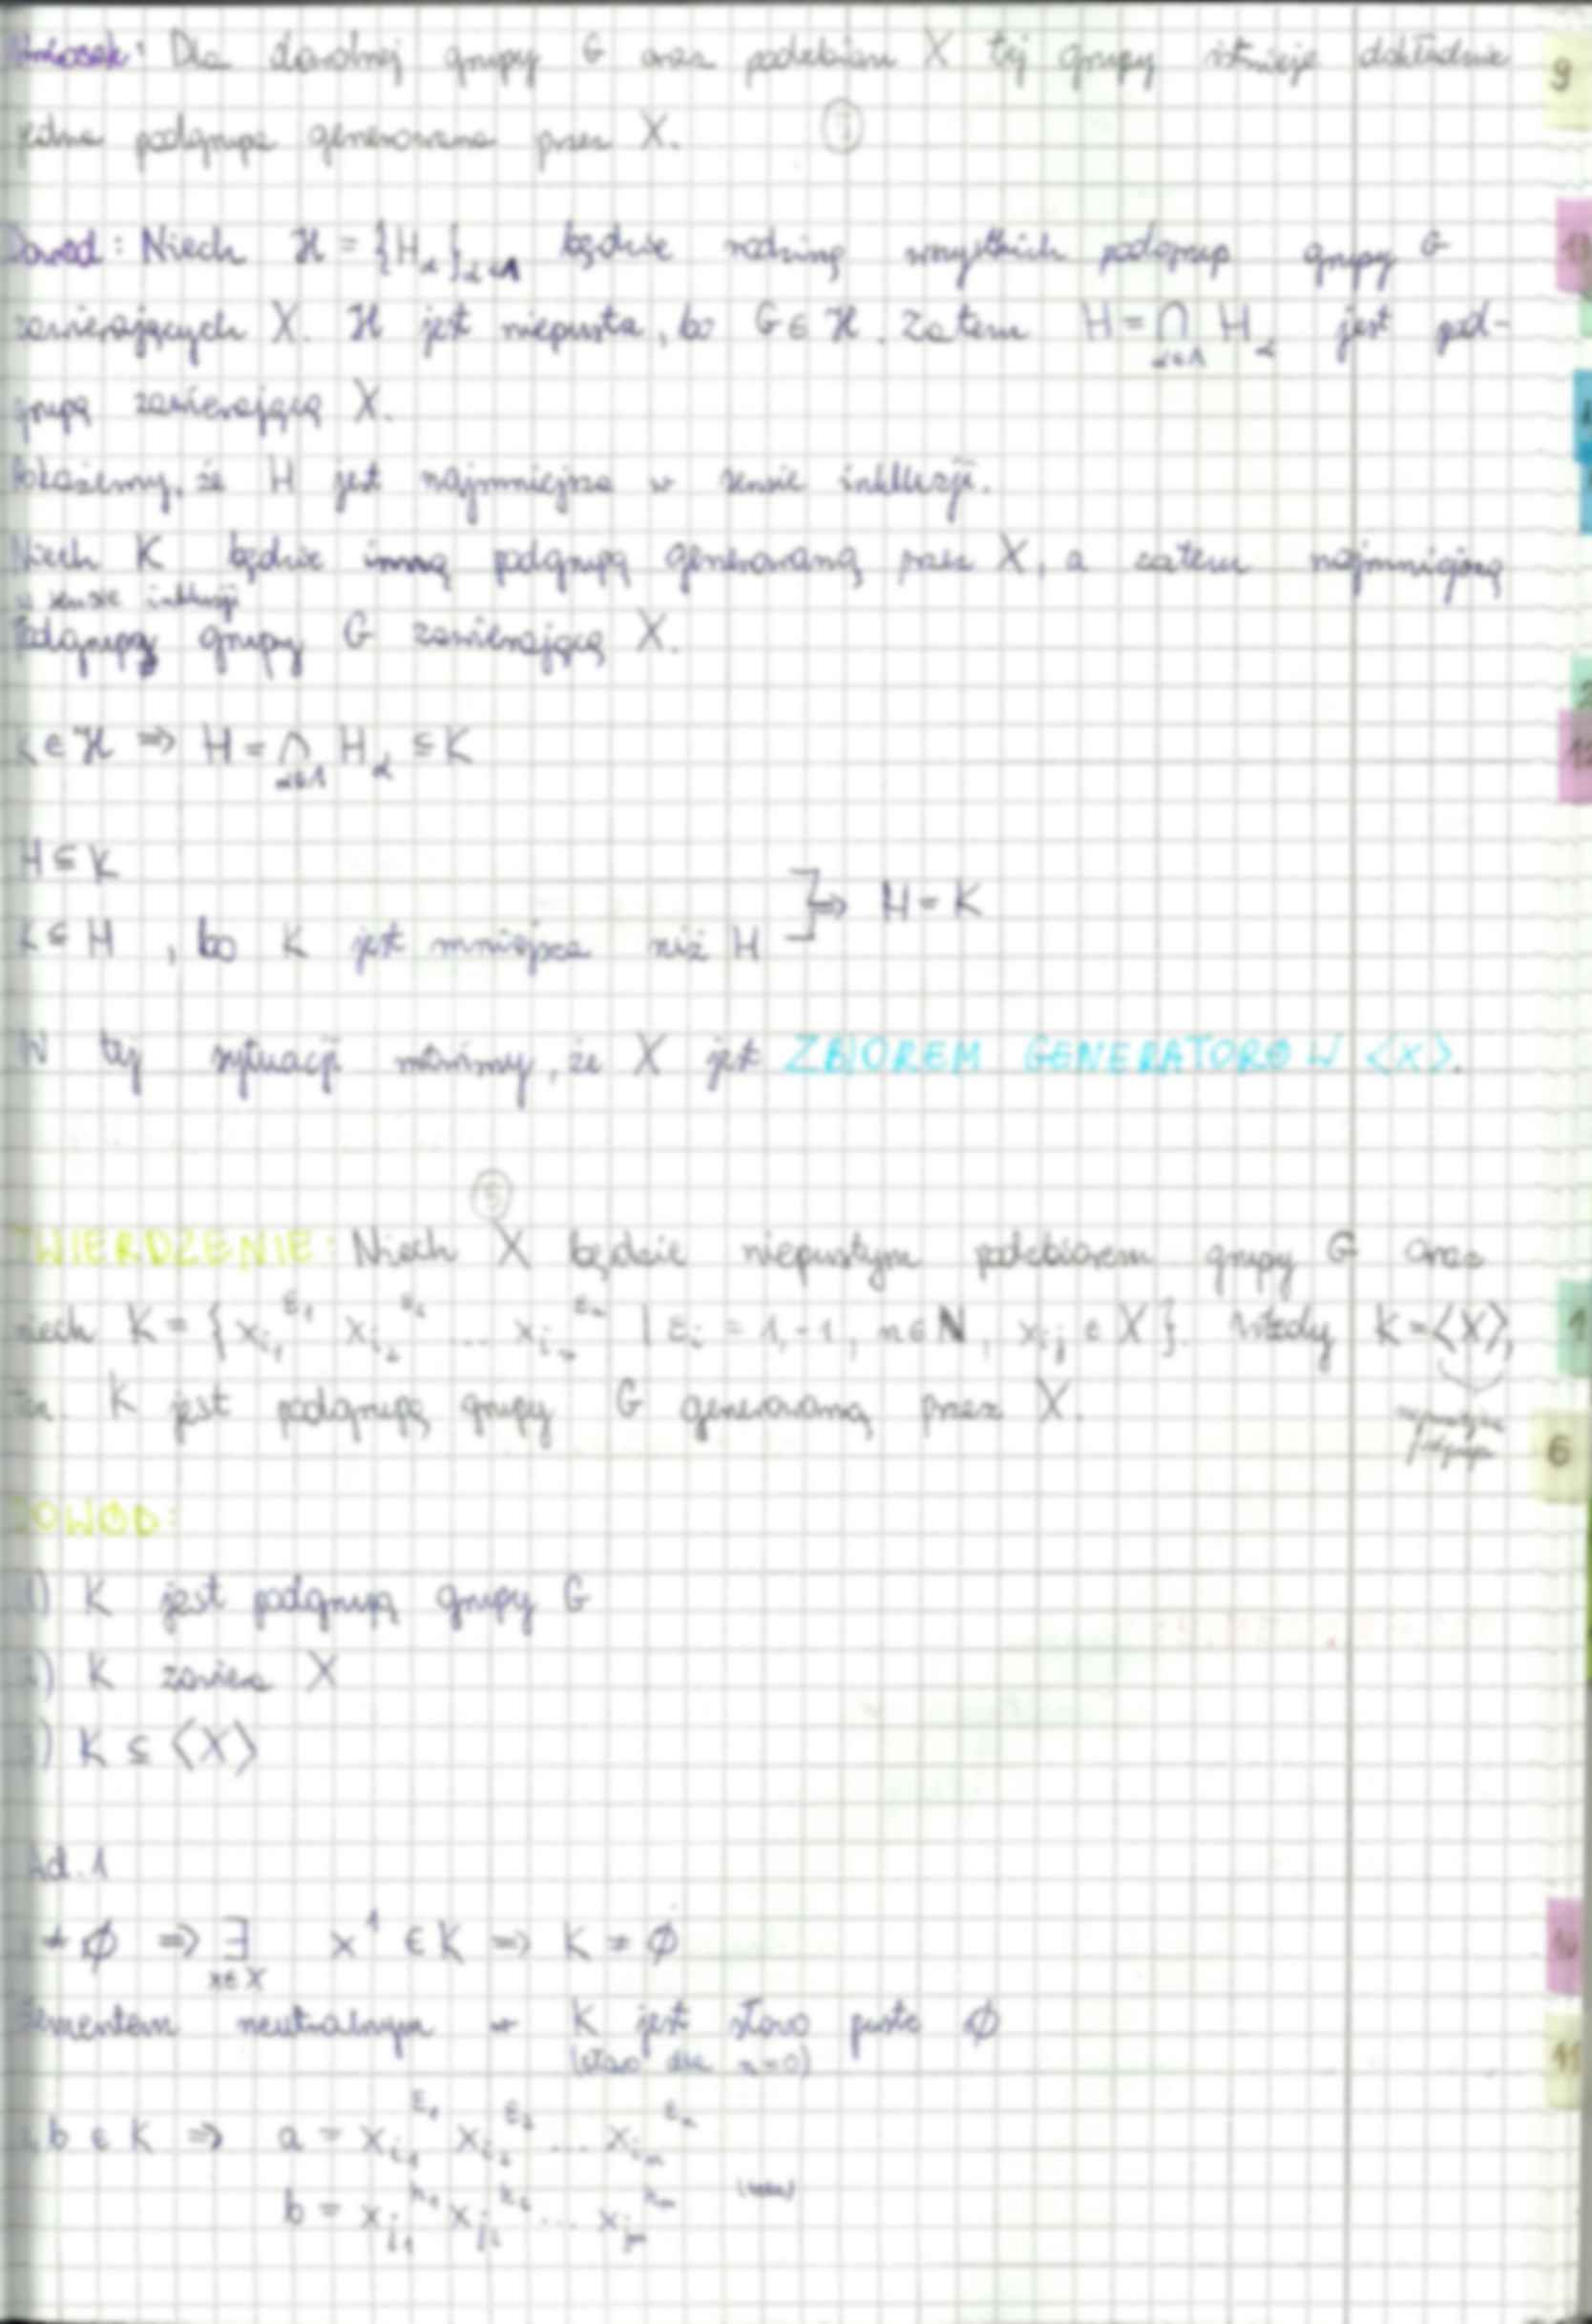 Wniosek: Dla dowolnej grupy G oraz podzbioru X tej grupy istnieje dokładnie
jedna podgrupa generowana przez X.
Dowód: Niech ℋ = {H_α}_{α∈Λ} będzie rodziną wszystkich podgrup grupy G
zawierających X. ℋ jest niepusta, bo G ∈ ℋ. Zatem H = ⋂_{α∈Λ} H_α jest pod-
grupą zawierającą X.
Pokażemy, że H jest najmniejsza w sensie inkluzji.
Niech K będzie inną podgrupą generowaną przez X, a zatem najmniejszą
w sensie inkluzji
podgrupą grupy G zawierającą X.
K ∈ ℋ ⇒ H = ⋂_{α∈Λ} H_α ⊆ K
H ⊆ K
K ⊆ H , bo K jest mniejsza niż H ] ⇒ H = K
W tej sytuacji mówimy, że X jest ZBIOREM GENERATORÓW ⟨X⟩.
TWIERDZENIE: Niech X będzie niepustym podzbiorem grupy G oraz
niech K = { x_{i_1}^{ε_1} x_{i_2}^{ε_2} ... x_{i_n}^{ε_n} | ε_i = 1, -1, n ∈ N, x_{i_j} ∈ X }. Wtedy K = ⟨X⟩,
tzn. K jest podgrupą grupy G generowaną przez X.
DOWÓD:
1) K jest podgrupą grupy G
2) K zawiera X
3) K ⊆ ⟨X⟩
Ad. 1
≠ ∅ ⇒ ∃_{x∈X} x^1 ∈ K ⇒ K ≠ ∅
Elementem neutralnym w K jest słowo puste ∅
(słowo dla n=0)
, b ∈ K ⇒ a = x_{i_1}^{ε_1} x_{i_2}^{ε_2} ... x_{i_n}^{ε_n}
b = x_{j_1} x_{j_2} ... x_{j_m}
9
12
1
6
11